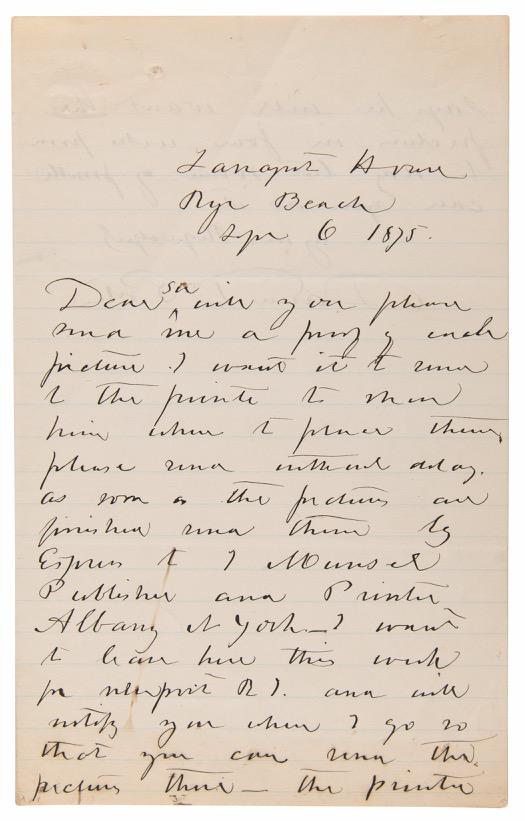 Farragut House
Rye Beach
Sep 6 1875.
Dear Sir will you please
send me a proof of each
picture. I want it to send
to the printer to show
him where to place them,
please send without delay.
as soon as the pictures are
finished send them by
Express to J Munsell
Publisher and Printer
Albany N York — I want
to leave here this week
for newport R I. and will
notify you when I go so
that you can send the
pictures there — the printer